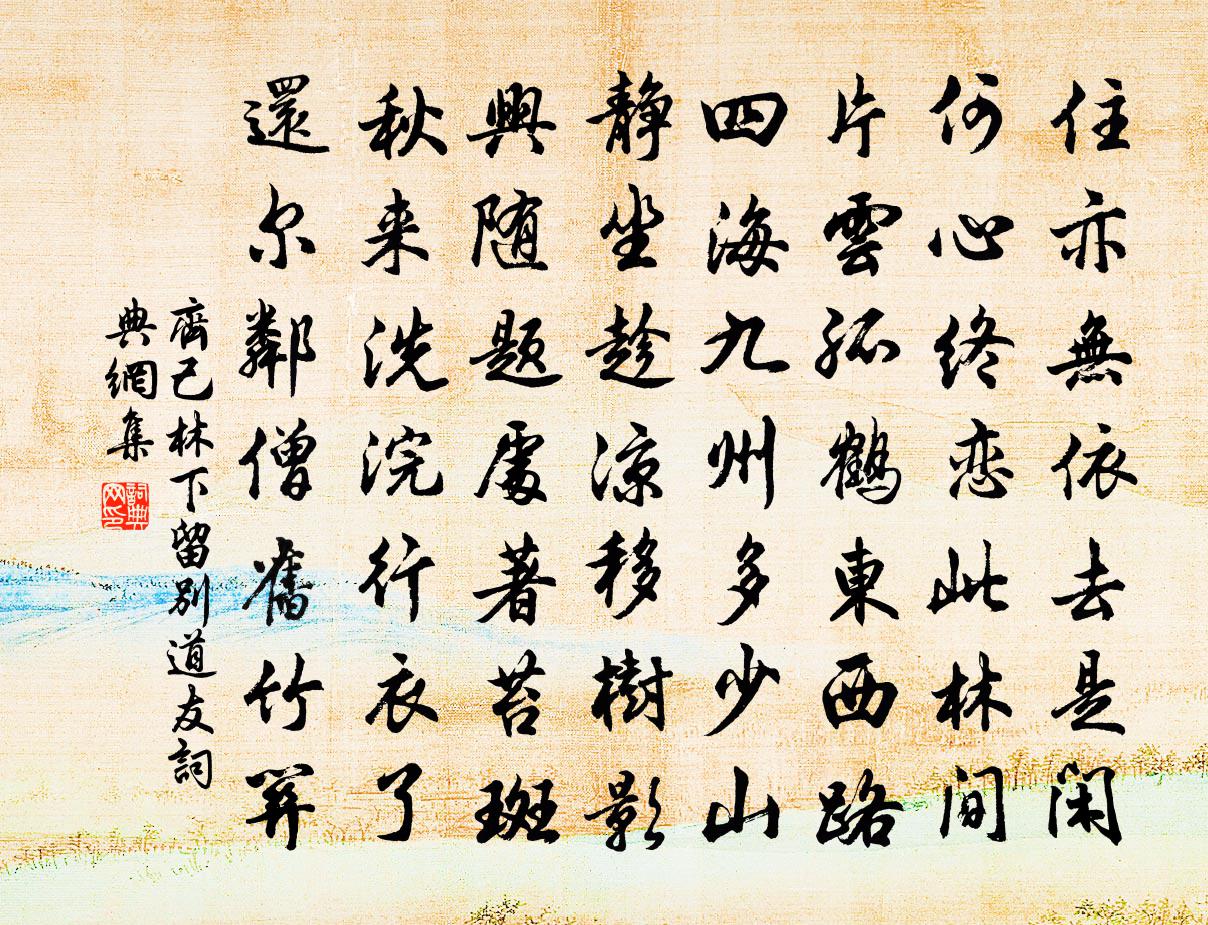 住亦無依去是閑
何心終恋此林間
片雲孤鶴東西路
四海九州多少山
靜坐趁涼移樹影
興随題處著苔斑
秋来洗浣行衣了
還尔鄰僧舊竹關
齊己林下留别道友詞
典網集
詞典
网印